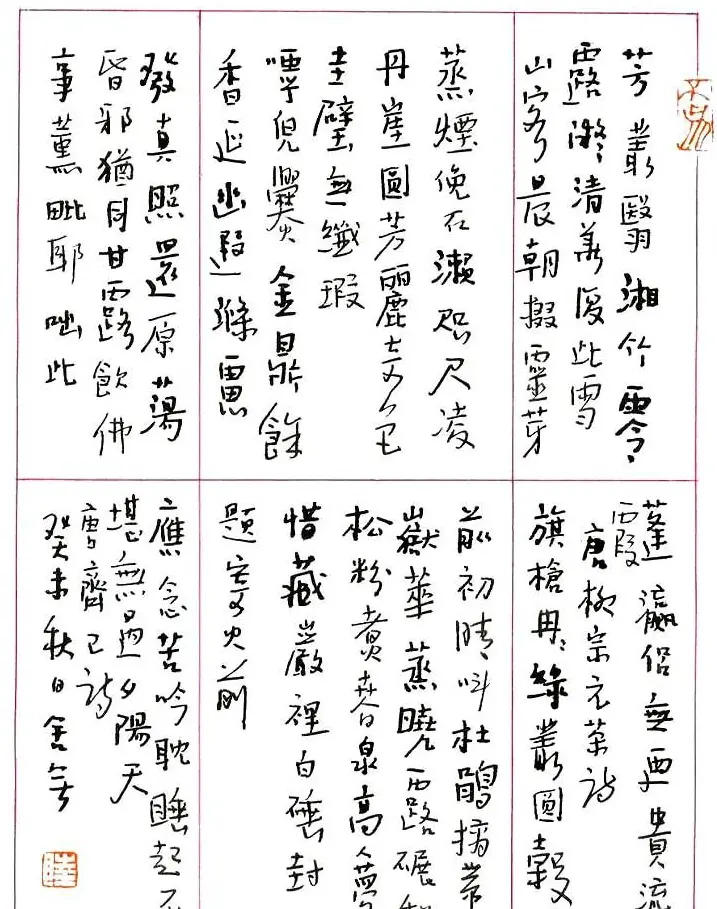 芳叢翳湘竹零
露凝清華復此雪
山客晨朝掇靈芽
蒸煙俛石瀨咫尺凌
丹崖圓芳麗奇色
圭璧無纖瑕
嘑兒爨金鼎餘
香延幽遐滌慮
發真照還原蕩
昏邪猶同甘露飲佛
事薰毗耶咄此
蓬瀛侶無迺貴流
霞
唐柳宗元茶詩
旗槍冉冉綠叢圓穀
前初晴叫杜鵑摘帶
嶽華蒸曉露碾和
松粉煮春泉高人夢
惜藏巖裡白硾封
題寄火前
應念苦吟耽睡起不
堪無過夕陽天
唐齊己詩
癸未秋日